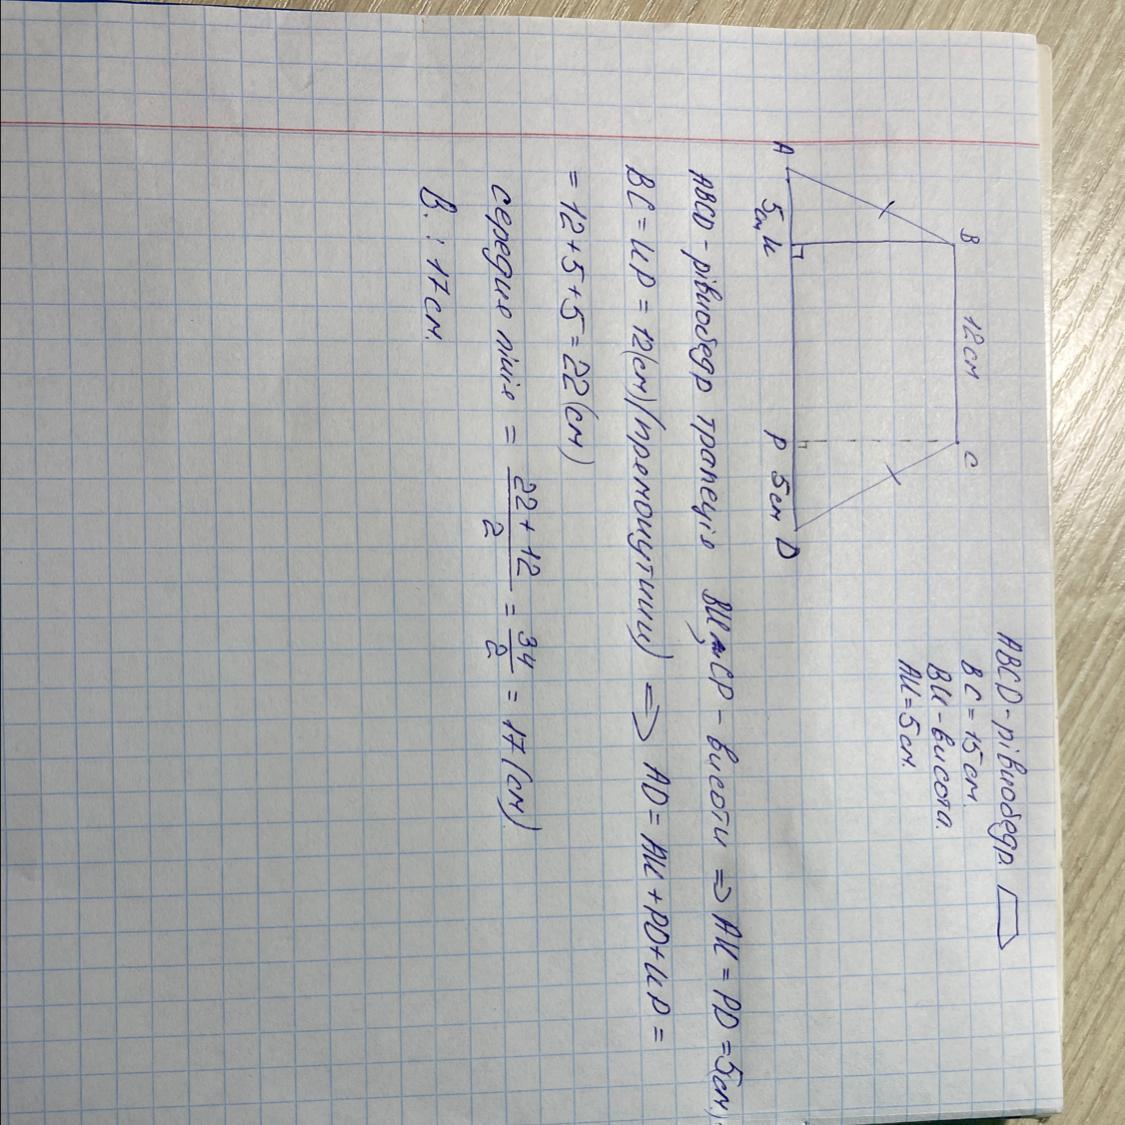 ABCD - рівнобедр.
BC = 15 см.
BK - висота.
AK = 5 см.
B 12 см C
A 5 см K P 5 см D
ABCD - рівнобедр трапеція BK, CP - висоти => AK = PD = 5 см,
BC = KP = 12 (см) (прямокутник) => AD = AK + PD + KP =
= 12 + 5 + 5 = 22 (см)
середня лінія = \frac{22 + 12}{2} = \frac{34}{2} = 17 (см)
В. : 17 см.